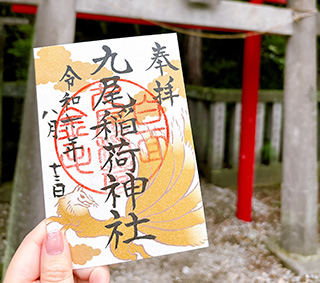 奉拝
九尾稲荷神社
令和三年
八月十二日